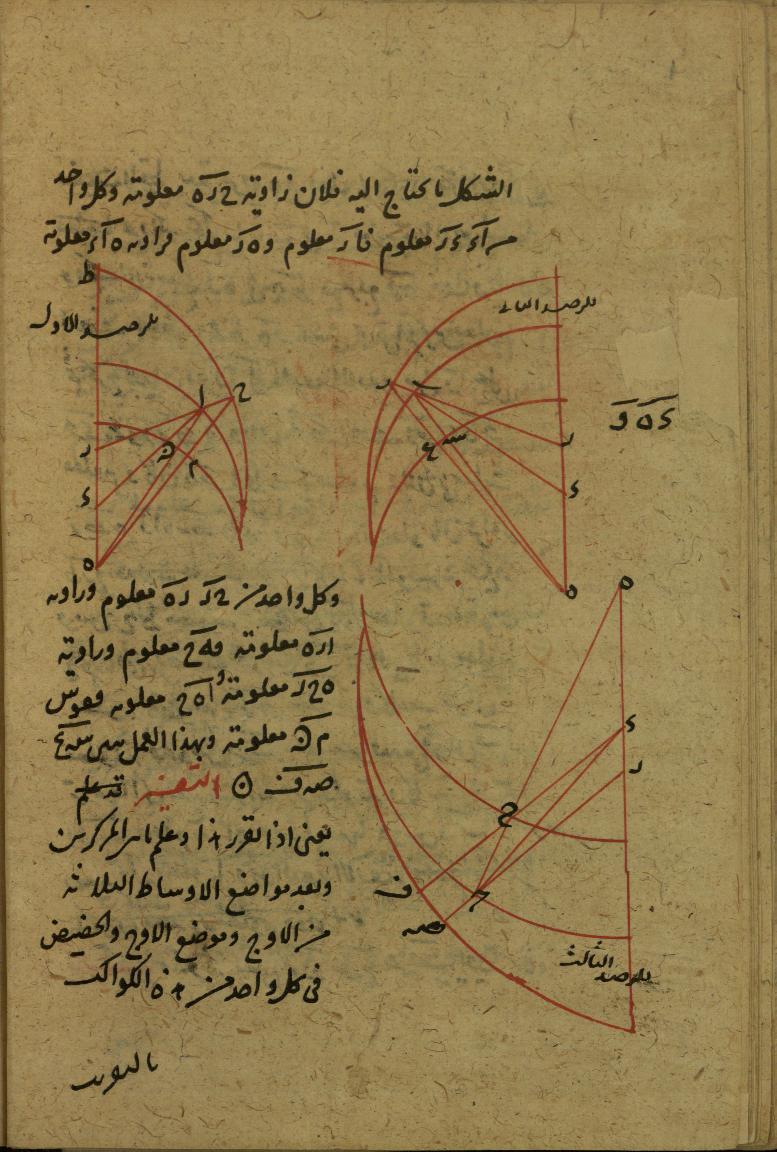 الشكل ما يحتاج اليه فلان زاوية ح ر ه معلومة وكل واحد
من آ ء ء ر معلوم فا ر معلوم و ه ر معلوم فزاوية ه آ ر معلومة
ط
للرصد الاول
ا
ح
ر
ن
م
ء
ه
للرصد الثاني
ر
ب
ر
س
ع
ء
ه
ء ه و
وكل واحد من ح ر ر ه معلوم وزاوية
ا ر ه معلومة فه ح معلوم وزاوية
ه ح ر معلومة و ا ه ح معلومة فقوس
م ن معلومة وبهذا العمل س ع
ص ف ن التفسير قد علم
يعني اذا تقرر هذا وعلم ما بين المركزين
وبعد مواضع الاوساط الثلاثة
من الاوج وموضع الاوج والحضيض
في كل واحد من هذه الكواكب
ه
ء
ر
ح
ف
ص
للرصد الثالث